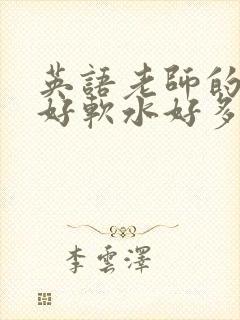 英語老師的
好軟水好多
李雲澤